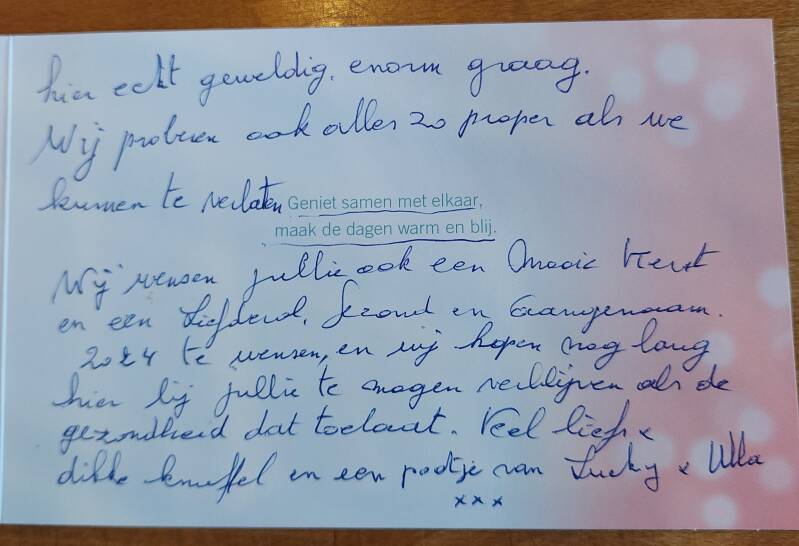 hier echt geweldig, enorm graag.
Wij proberen ook alles zo proper als we
kunnen te verlaten
Geniet samen met elkaar,
maak de dagen warm en blij.
Wij wensen jullie ook een Mooie Kerst
en een Liefdevol, Gezond en Aangenaam.
2024 te wensen, en wij hopen nog lang
hier bij jullie te mogen verblijven als de
gezondheid dat toelaat. Veel liefs x
dikke knuffel en een pootje van Lucky x Ulla
xxx